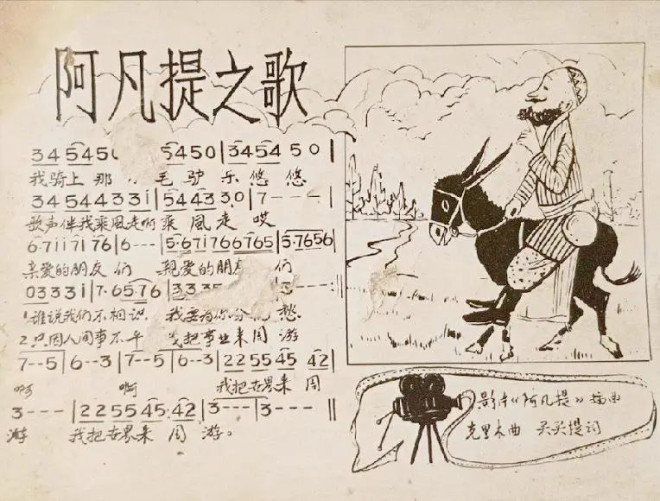 阿凡提之歌
34545 5450|3454 5 0|
我骑上那 毛驴乐悠悠
34544331|544330|7---|
歌声伴我乘風走啊乘風走哎
6·711717 76|6---|5·671766765|5·7656|
亲爱的朋友们 親爱的朋友 们
03331|7·6576|333
1.谁说我们不相识 我要为你分 愁
2.只因人间事不平 我把世界来周游
7--5|6--3|7--5|6--3|22554542|
啊 啊 我把世界来周
3---|22554542|3---|3---‖
游 我把世界来周游。
影片《阿凡提》插曲
克里木曲 买买提词